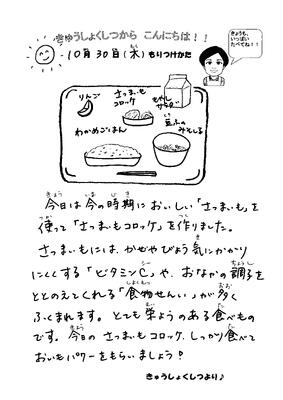 きゅうしょくしつから こんにちは！！
きょうも、
いっぱい
たべてね！！
10月30日(木) もりつけかた
りんご
さつまいも
コロッケ
もやし
サラダ
わかめごはん
豆ふの
みそしる
今日は今の時期においしい「さつまいも」を
使って「さつまいもコロッケ」を作りました。
さつまいもには、かぜやびょう気にかかり
にくくする「ビタミンC」や、おなかの調子を
ととのえてくれる「食物せんい」が多く
ふくまれます。とても栄ようのある食べもの
です。今日のさつまいもコロッケ、しっかり食べて
おいもパワーをもらいましょう？
きゅうしょくしつより♪